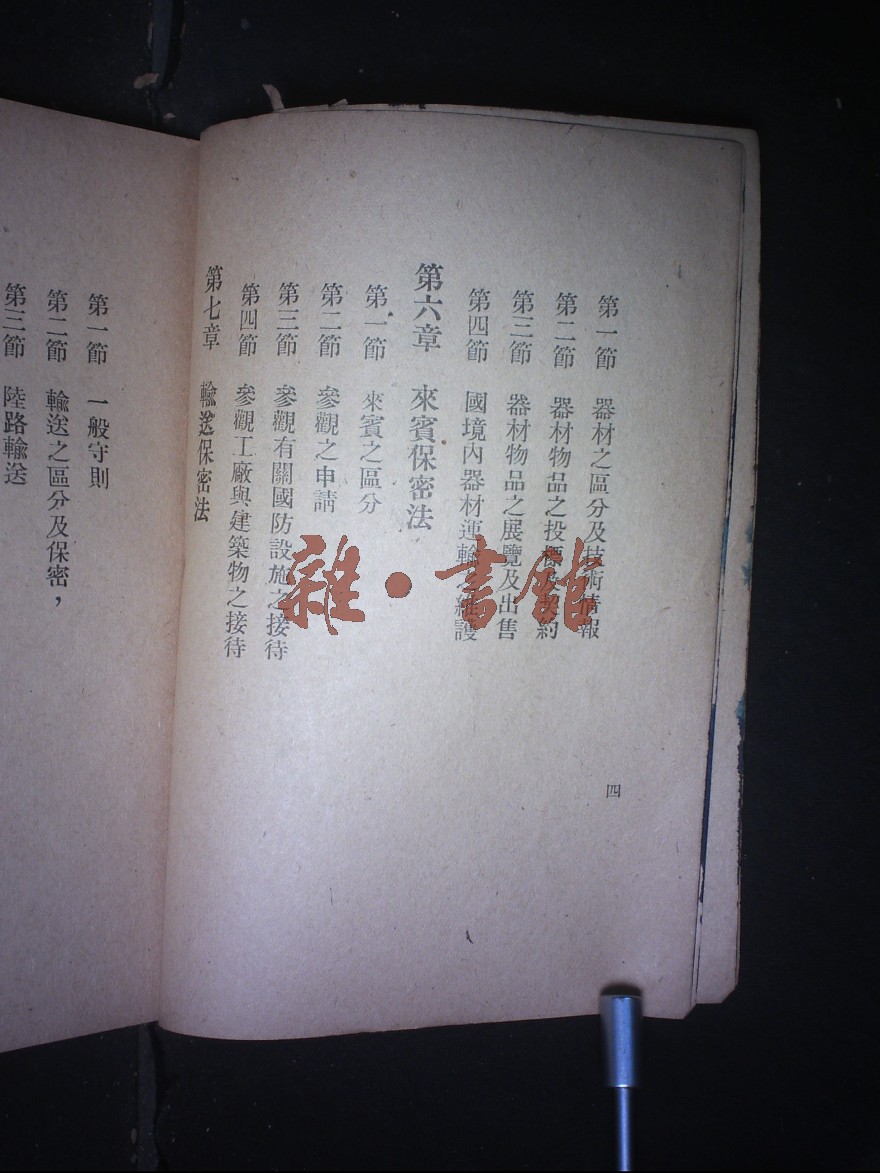 第一節 器材之區分及技術情報
第二節 器材物品之投標及契約
第三節 器材物品之展覽及出售
第四節 國境內器材運輸之維護
第六章 來賓保密法
第一節 來賓之區分
第二節 參觀之申請
第三節 參觀有關國防設施之接待
第四節 參觀工廠與建築物之接待
第七章 輸送保密法
四
第一節 一般守則
第二節 輸送之區分及保密,
第三節 陸路輸送
雜·書館